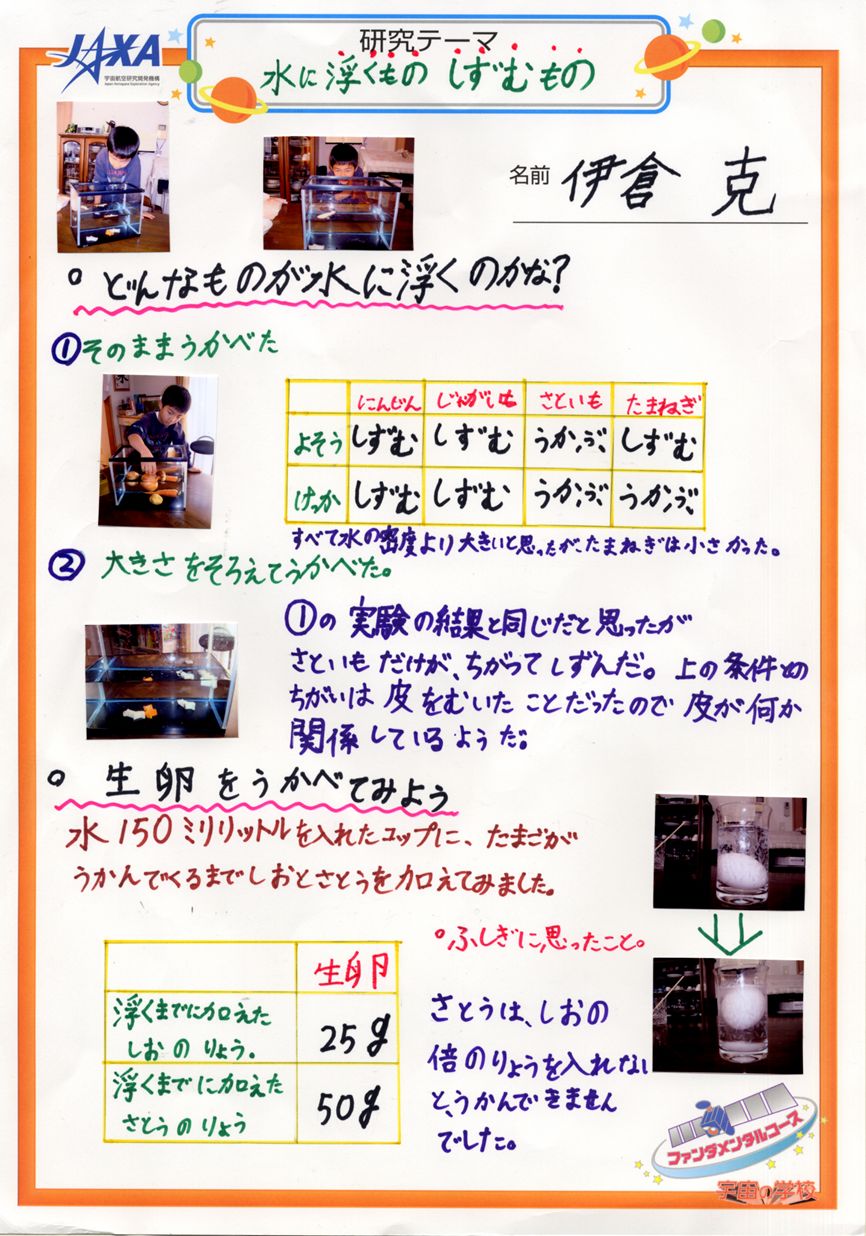 JAXA
宇宙航空研究開発機構
Japan Aerospace Exploration Agency
研究テーマ
水に浮くもの しずむもの
名前 伊倉 克
どんなものが水に浮くのかな?
①そのままうかべた
にんじん じゃがいも さといも たまねぎ
よそう しずむ しずむ うかぶ しずむ
けっか しずむ しずむ うかぶ うかぶ
すべて水の密度より大きいと思ったが、たまねぎは小さかった。
② 大きさをそろえてうかべた。
①の実験の結果と同じだと思ったが
さといもだけが、ちがってしずんだ。上の条件との
ちがいは皮をむいたことだったので皮が何か
関係しているようだ。
生卵をうかべてみよう
水150ミリリットルを入れたコップに、たまごが
うかんでくるまでしおとさとうを加えてみました。
生卵
浮くまでに加えた
しおのりょう。
25g
浮くまでに加えた
さとうのりょう
50g
ふしぎに思ったこと。
さとうは、しおの
倍のりょうを入れない
と、うかんできません
でした。
ファンダメンタルコース
宇宙の学校